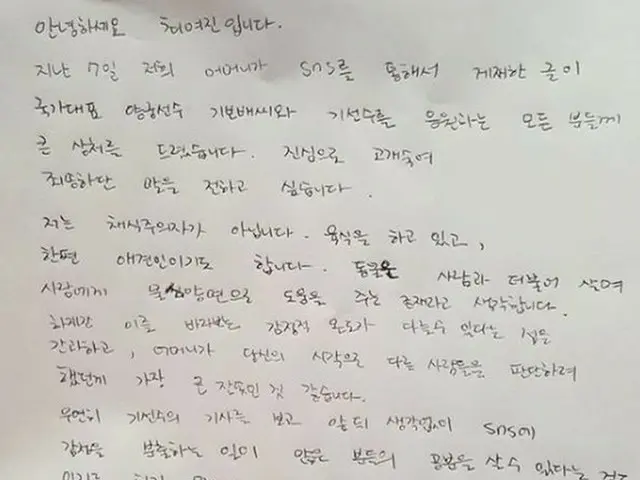 안녕하세요 최여진입니다.
지난 7일 저희 어머니가 SNS를 통해서 게재한 글이
국가대표 양궁선수 기보배씨와 기선수를 응원하는 모든 분들께
큰 상처를 드렸습니다. 진심으로 고개숙여
죄송하단 말을 전하고 싶습니다.
저는 채식주의자가 아닙니다. 육식을 하고 있고,
한편 애견인이기도 합니다. 동물은 사람과 더불어 살며
사람에게 물심양면으로 도움을 주는 존재라고 생각합니다.
하지만 이를 바라보는 감정적 온도가 다를수 있다는 점을
간과하고, 어머니가 당신의 시각으로 다른 사람들을 판단하려
했던게 가장 큰 잘못인 것 같습니다.
우연히 기선수의 기사를 보고 앞뒤 생각없이 SNS에
감정을 분출하는 일이 많은 분들의 공분을 살수 있다는